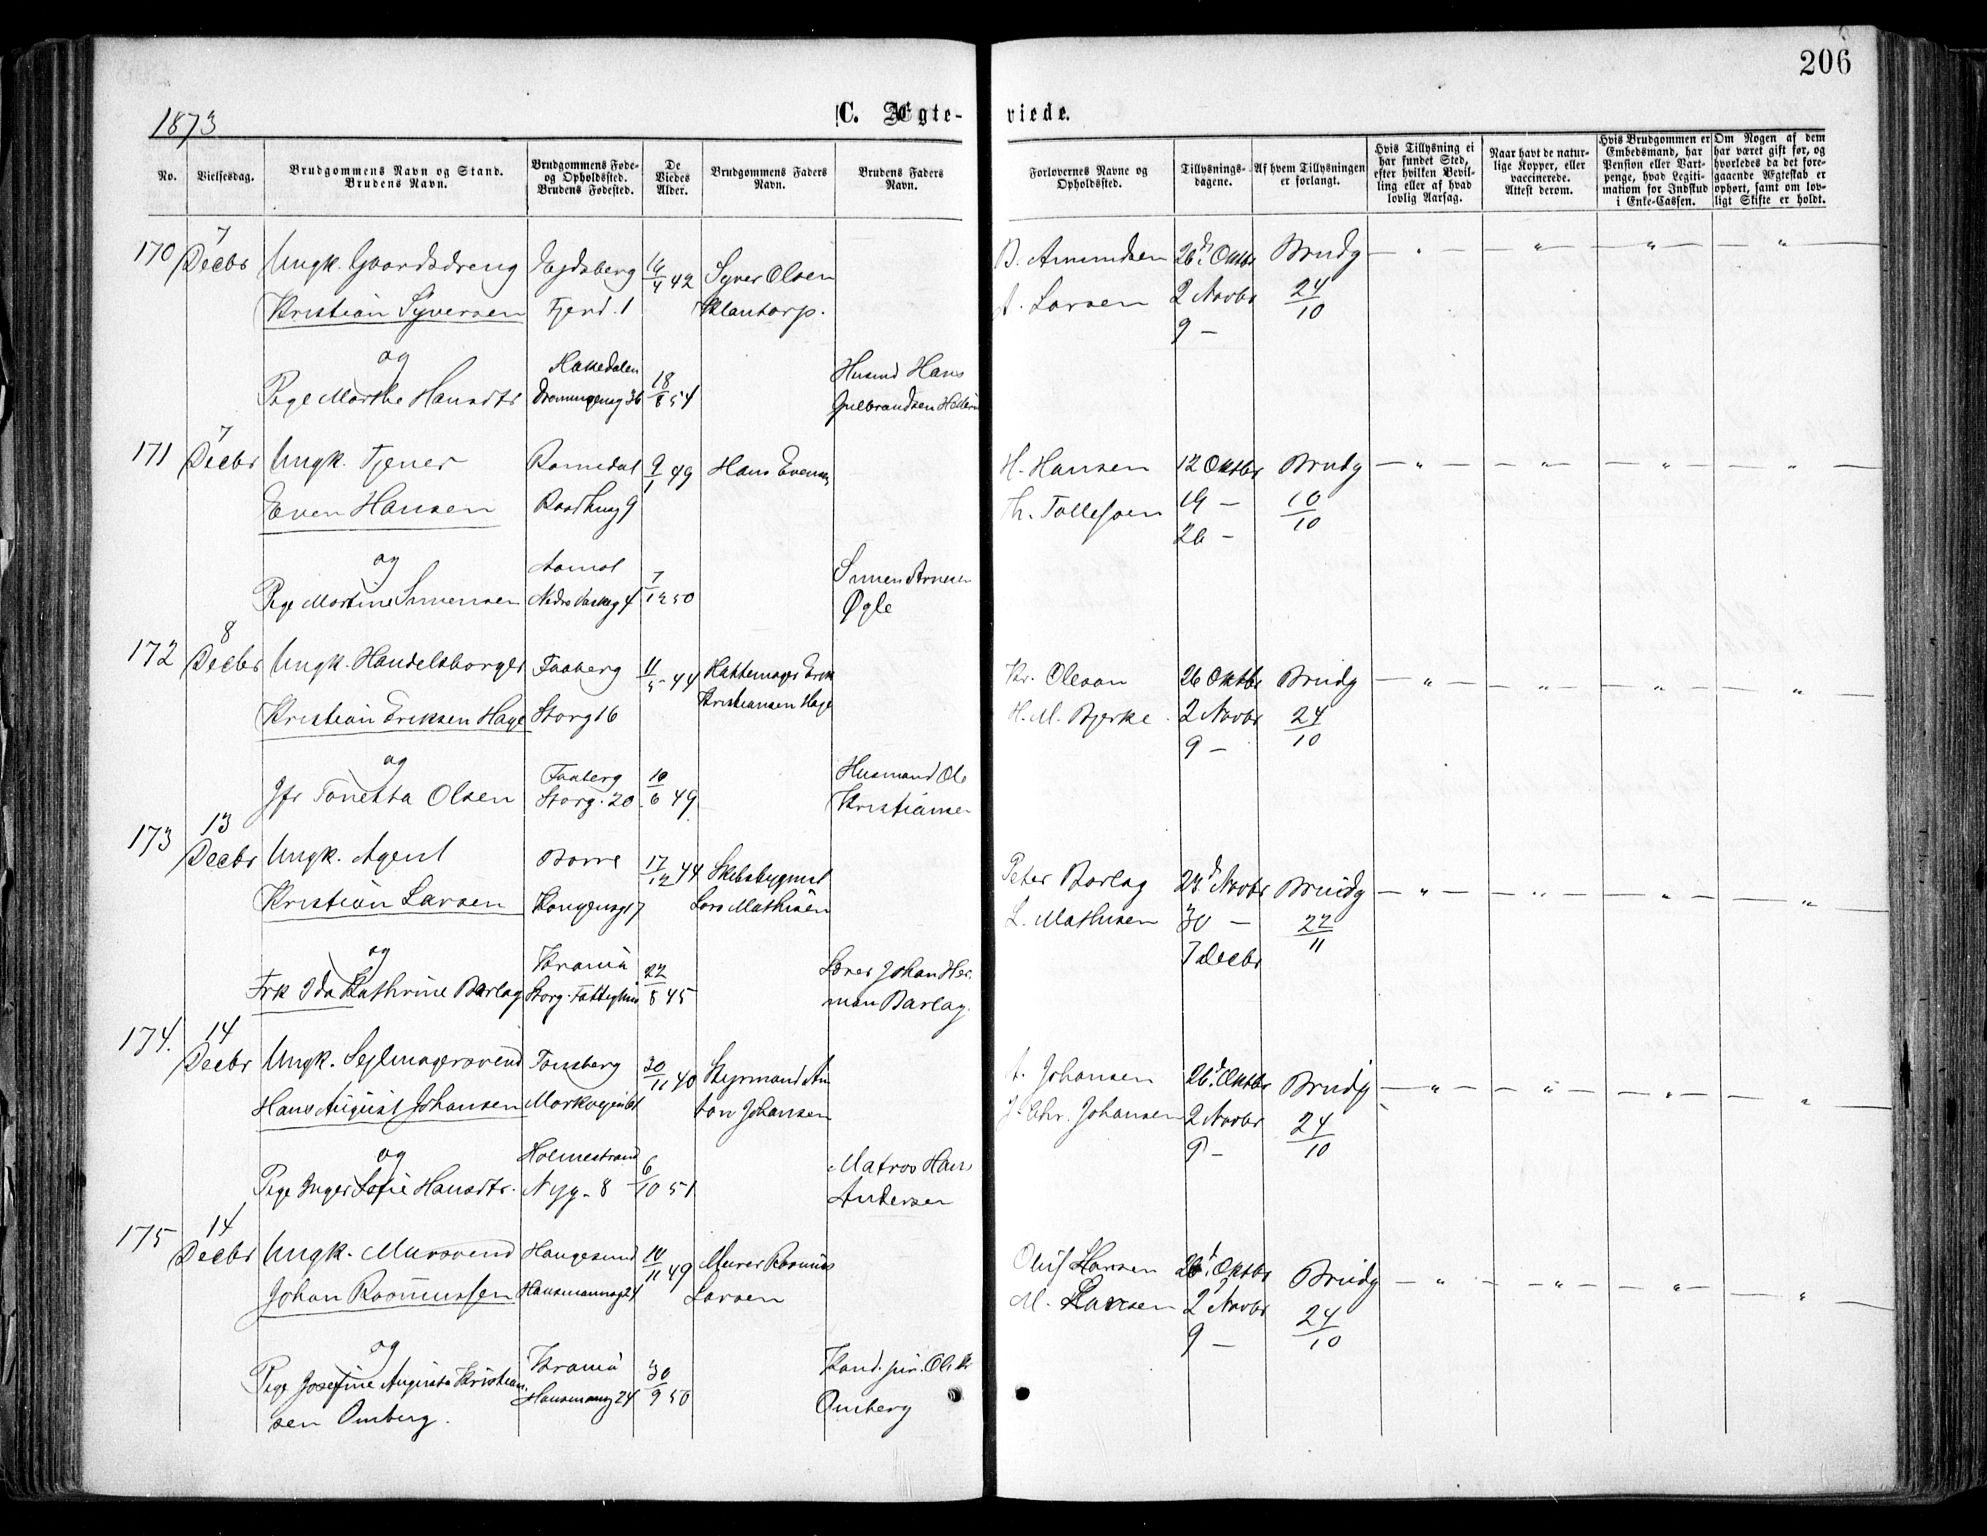 206
1873
C. Ægte-
viede.
No.
Vielsesdag.
Brudgommens Navn og Stand.
Brudens Navn.
Brudgommens Føde-
og Opholdssted.
Brudens Fødested.
De
Viedes
Alder.
Brudgommens Faders
Navn.
Brudens Faders
Navn.
Forlovernes Navne og
Opholdssted.
Tillysnings-
dagene.
Af hvem Tillysningen
er forlangt.
Hvis Tillysning ei
har fundet Sted,
efter hvilken Bevil-
ling eller af hvad
lovlig Aarsag.
Naar havt de natur-
lige Kopper, eller
vaccinerede.
Attest derom.
Hvis Brudgommen er
Embedsmand, har
Pension eller Vart-
penge, hvad Legiti-
mation for Indskud
i Enke-Cassen.
Om Nogen af dem
har været gift før, og
hvorledes da det fore-
gaaende Ægteskab er
ophørt, samt om lov-
ligt Skifte er holdt.
170 7 Decbr Ungk. Gaardsdreng Ejdsberg 42 Syver Olsen B. Amundsen 26d. Oktbr Brudg
Kristian Syversen Fjerd. 1 Klantorp. A. Larsen 2 Novbr 24/10
9 –
og Hakedalen 18/8 54 Husmd Hans
Pige Marthe Hansdtr Dronningensg 36 Gulbrandsen
171 7 Decbr Ungk. Tjener Romedal 9/1 49 Hans Evensen H. Hansen 12 Oktbr Brudg
Even Hansen Raadhusg 9 Th. Tollefsen 19 – 10/10
26 –
og Aamot 7/12 50 Simen Arnesen
Pige Martine Simensen 4 Øgle
172 8 Decbr Ungk. Handelsborger Faaberg 11/5 44 Hattemager Erik Kr. Olsson 26 Oktbr Brudg
Kristian Eriksen Hage Storg 16 Kristiansen Hage H. M. Bjerke. 2 Novbr 24/10
9 –
og Faaberg 10/6 49 Husmand Ole
Jfr Tonetta Olsen Storg. 20 Kristiansen
173 13 Decbr Ungk. Agent Borre 17/12 44 Skibsbygmst Peter Barlag 23d Novbr Brudg
Kristian Larsen Kongensgt 7 Lars Mathisen L. Mathisen 30 – 22/11
7 Decbr
og Krania 22/8 45 Johan Her
Frk Ida Kathrine Barlag Storg. man Barlag.
174. 14 Decbr Ungk. Sejlmagersvend Tønsberg 30/11 40 Styrmand An A. Johansen 26d. Oktbr Brudg
Hans August Johansen Markvejen ton Johansen J. Chr. Johansen 2 Novbr 24/10
9 –
og Holmestrand 6/10 51 Matros Hans
Pige Inger Sofie Hansdtr. Nyg. 8 Andersen
175 14 Decbr Ungk. Mursvend Haugesund 10/11 49 Murer Rasmus Oluf Hansen 26d. Oktbr Brudg
Johan Rasmussen Hausmannsg 24 Larsen M. Larsen 2 Novbr 24/10
9 –
og Krania 30/9 50 Kand. jur. Ole Kr
Pige Josefine Augusta Kristian- Hausmannsg 24 Omberg
sen Omberg.